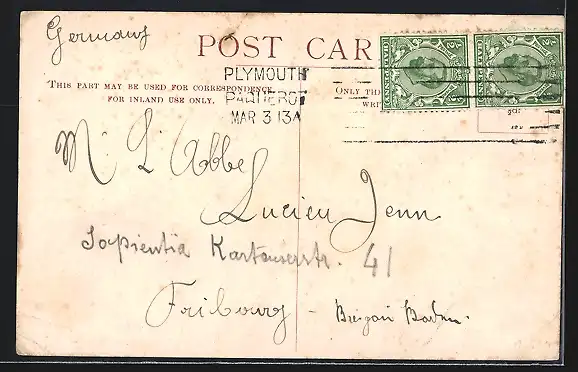 Germany
POST CAR
PLYMOUTH
MAR 3 13A
THIS PART MAY BE USED FOR CORRESPONDENCE
FOR INLAND USE ONLY.
ONLY TH
WRI
Mr L'Abbé
Lucien Jenn
Sapientia Kartauserstr. 41
Fribourg - Breisgau Baden.